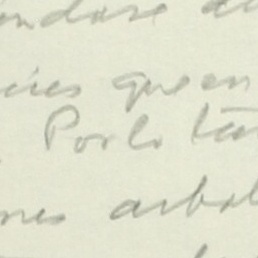 ándose
cies que en
Por lo tan
nes arbol